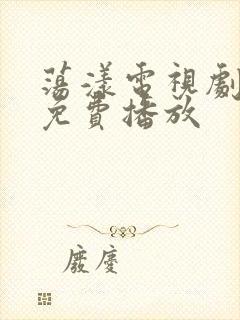 蕩漾電視劇
免費播放
廢慶